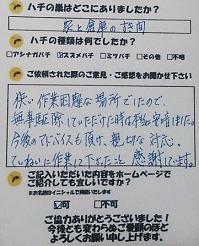 ハチの巣はどこにありましたか?
家と倉庫のすき間
ハチの種類は何でしたか?
アシナガバチ ②スズメバチ ③ミツバチ ④その他 ⑤不明
ご依頼された際のご意見・ご感想をお聞かせ下さい
狭い作業困難な場所でしたので、
無事駆除していただけた時は安堵しました。
今後のアドバイスも頂け、親切な対応、
ていねいに作業して下さったこと 感謝しています。
ご記入いただいた内容をホームページで
ご紹介しても宜しいですか?
※お名前はイニシャルで掲載いたします
可 不可
ご協力ありがとうございました!
今後とも変わらぬご愛顧のほど
よろしくお願い申し上げます。